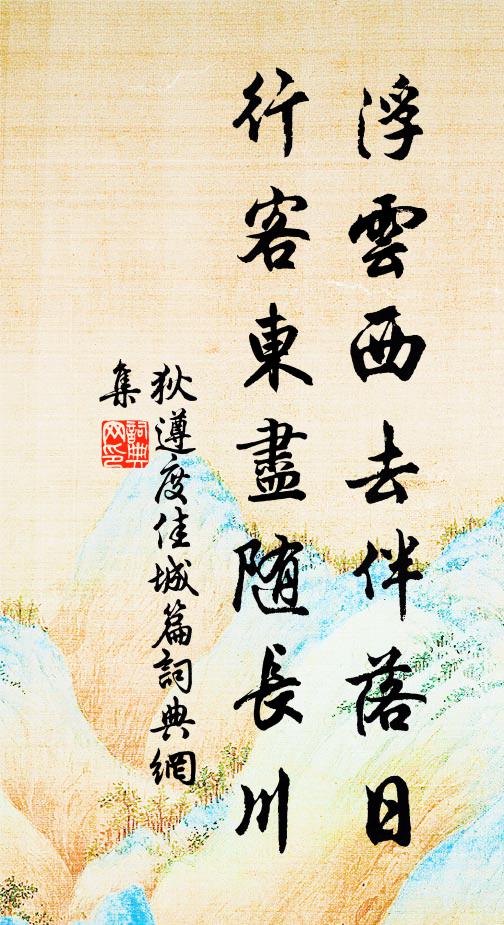 浮雲西去伴落日
行客東盡随長川
狄遵度佳城篇詞典網
集
詞典
网印